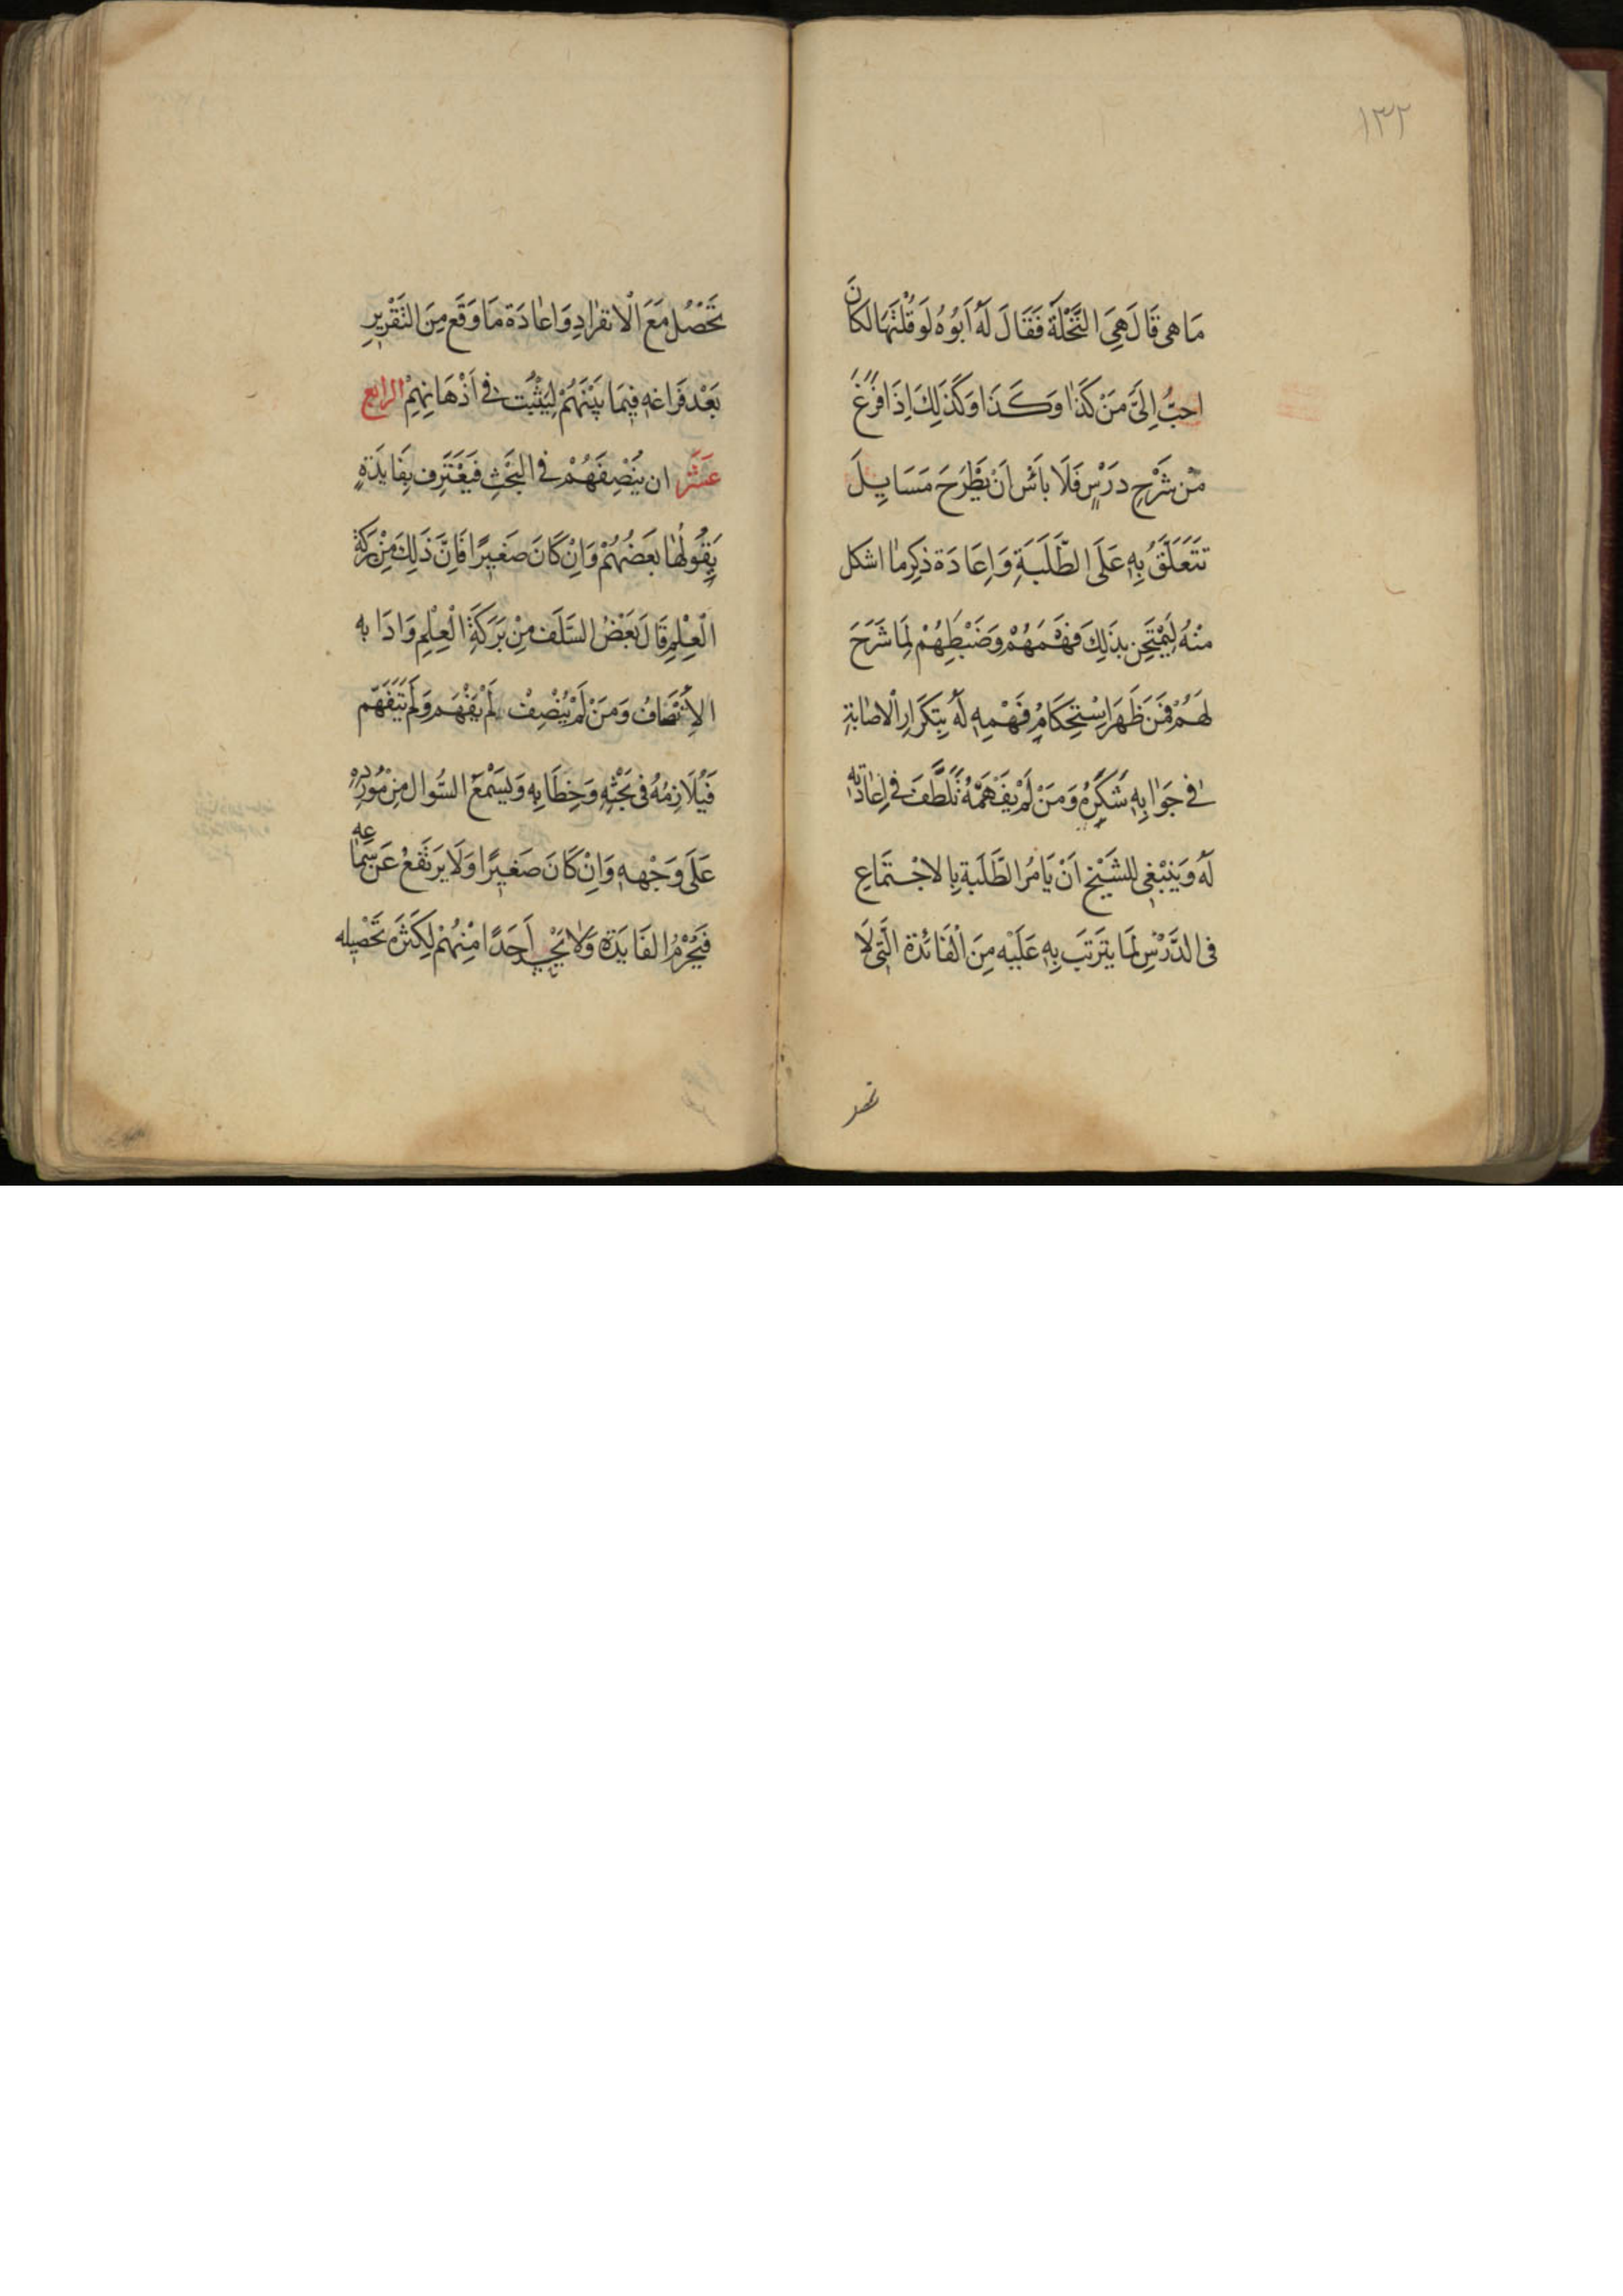 ١٣٢
مَا هى قَالَ هِىَ النَّخْلَة فَقَالَ لَهُ اَبُوهُ لَوْ قُلْتَهَا لكَانَ
احبُّ اِلَىَّ مَنْ كَذَا وَكَذَا وَكَذَلِكَ اِذَا فَرَغَ
مْن شَرْحِ دَرْسٍ فَلَا بَأسَ اَنْ يَطْرَحَ مَسَايِلَ
تتَعَلَّقُ بِهِ عَلَى الطَّلَبَةِ وَاِعَادَة ذكِر مَا اشكل
منْهُ لِيَمْتَحِن بذَلِكَ فَهْمَهُمْ وَضَبْطِهُمْ لِمَا شَرَحَ
لَهُمْ فَمَن ظَهَرَ اسْتِحكَامُ فَهْمِهِ لَهُ بِتَكَرَارِ الْاصَابَةِ
فى جَوَابِهِ شَكَرَهُ وَمَنْ لَمْ يَفْهَمْهُ تَلَطَّفَ فى اِعَادَتِهِ
لَهُ وَيَنْبَغِى للشَيْخِ اَنْ يَامُرَ الطَّلَبَة بِالاجْتِمَاعِ
فى الدَّرْسِ لَمَا يتَرَتبَ بِهِ عَلَيْه مِنَ الْفَائدَة الَّتِى لَا
تحصل
تَحْصُل مَعَ الْانفرَادِ وَاعَادَة مَا وَقَع مِنَ التَقْرِيرِ
بَعْد فَرَاغه فِيمَا بَيْنَهُمْ لِيَثْبُتَ فى اَذْهَانِهِمْ الرابع
عَشَر ان يُنْصِفَهُمْ فى البَحْثِ فَيَعْتَرِف بِفَايدَةٍ
يَقُولُهَا بَعَضُهُمْ وَاِنْ كَانَ صَغِيرًا فَاِنَّ ذَلِكَ مِنْ بَرَكَة
الْعِلْمِ قَالَ بَعْضُ السَّلَف مِنْ بَرَكَةِ الْعِلْمِ وَادَابه
الاِنْصَافُ وَمَنَ لَمْ يُنْصِفْ لَمْ يَفْهَم وَلَمْ يَتَفَهَّم
فَيُلَازِمهُ فى بَحْثِهِ وَخِطَابِه وَيَسْمَع السُّوال مِنْ مُوْرِدِهْ
عَلَى وَجْههِ وَاِنْ كَانَ صَغيِرًا وَلَا يَرتَفع عَن سَمَاعه
فَيُحْرَمُ الفَايَدَة وَلَا اَحَدًا مْنهُمْ لِكَثرَة تَحْصِيله